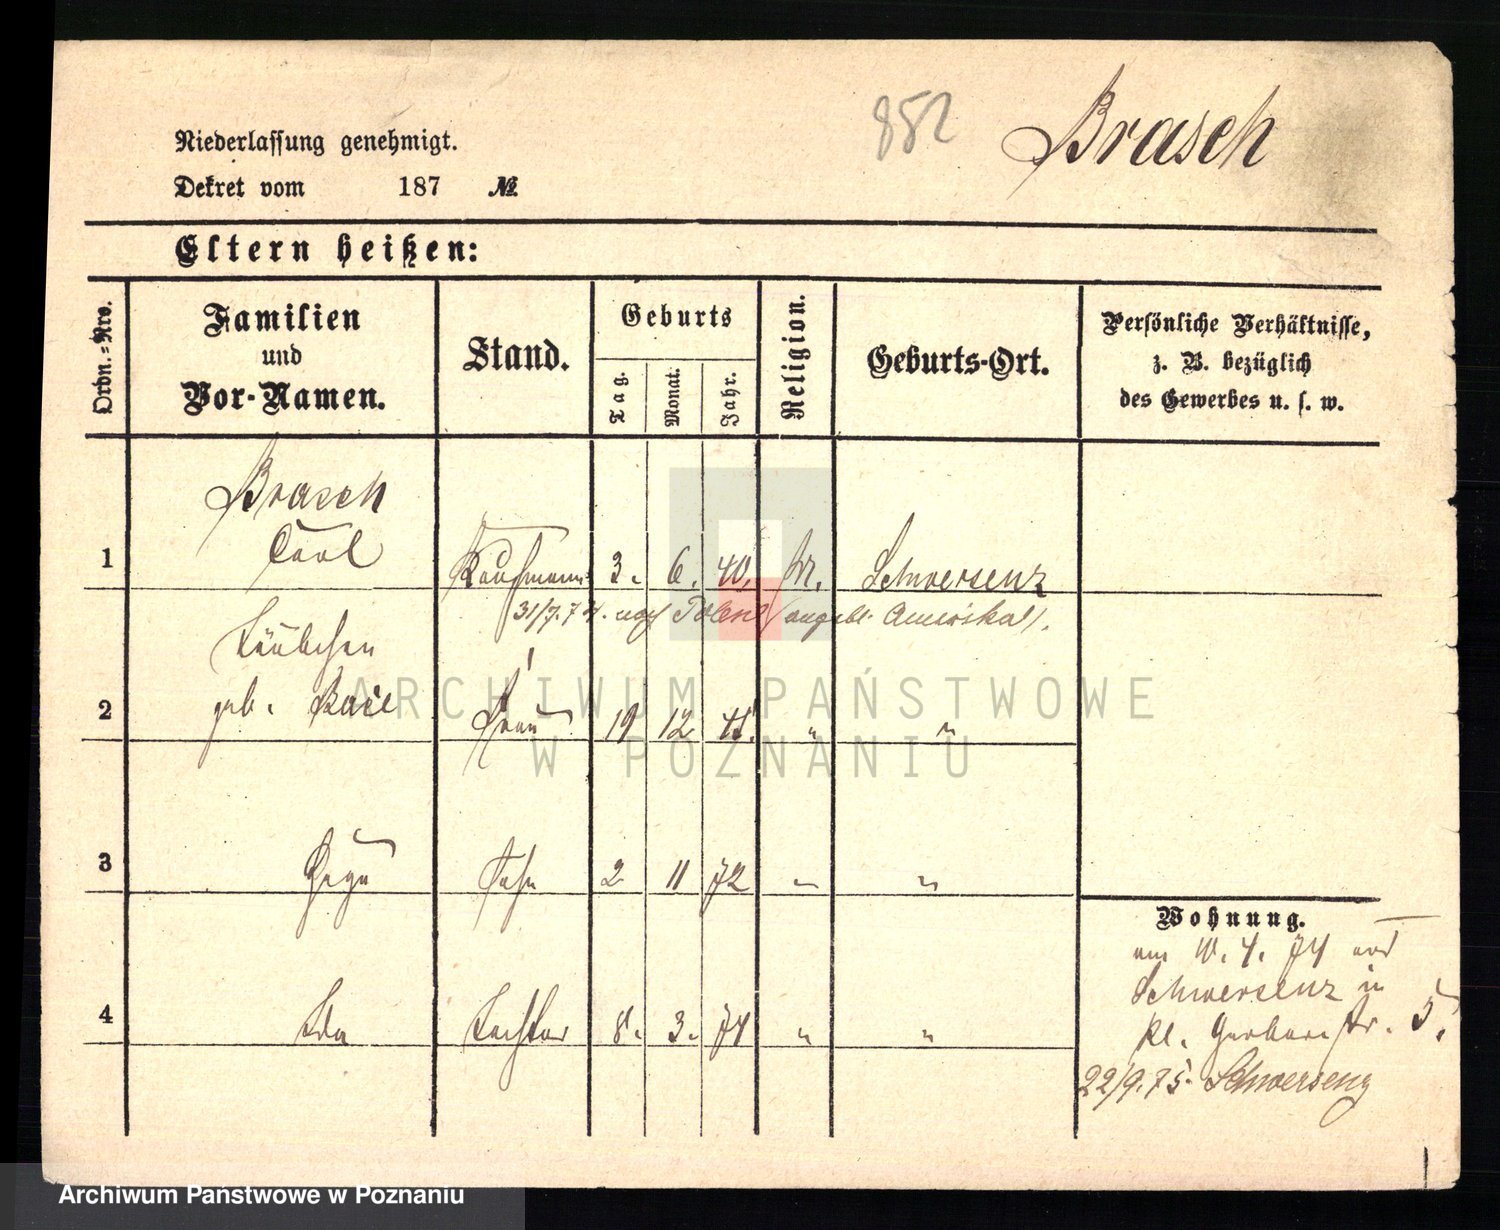 852 Brasch
Niederlassung genehmigt.
Dekret vom 187 №
Eltern heißen:
Ordn.=Nro.
Familien
und
Vor-Namen.
Stand.
Geburts
Tag.
Monat.
Jahr.
Religion.
Geburts-Ort.
Persönliche Verhältnisse,
z. B. bezüglich
des Gewerbes u. s. w.
Brasch
1 Carl Kaufmann 3. 6. 40. Schwersenz
31/7.74. nach Polen (angebl. Amerika).
Täubchen
2 geb. Frau 19 12 " "
3 2 11 72 " "
Wohnung.
am 10. 4. 74 aus
Schwersenz in
4 Ida Tochter 8. 3. 74 " "
kl. Gerberstr. 5.
22/9.75. Schwersenz
ARCHIWUM PAŃSTWOWE
W POZNANIU
Archiwum Państwowe w Poznaniu